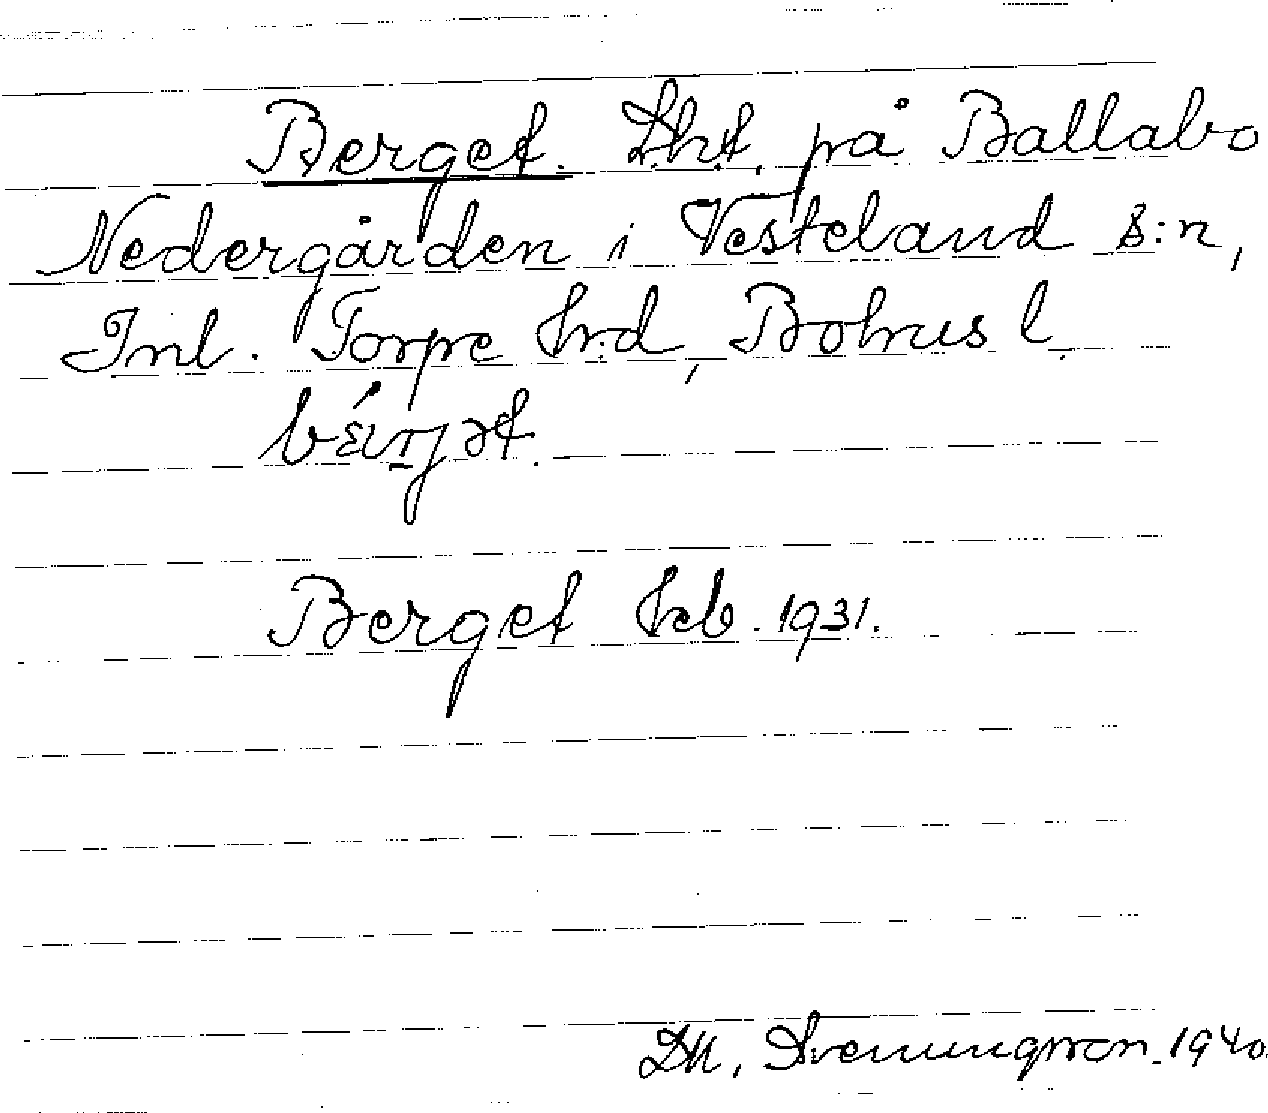 Berget. Lht. på Ballabo
Nedergården i Vesteland s:n,
Inl. Torpe hrd, Bohus l.
Berget hcb. 1931.
Svenungsson. 1940.